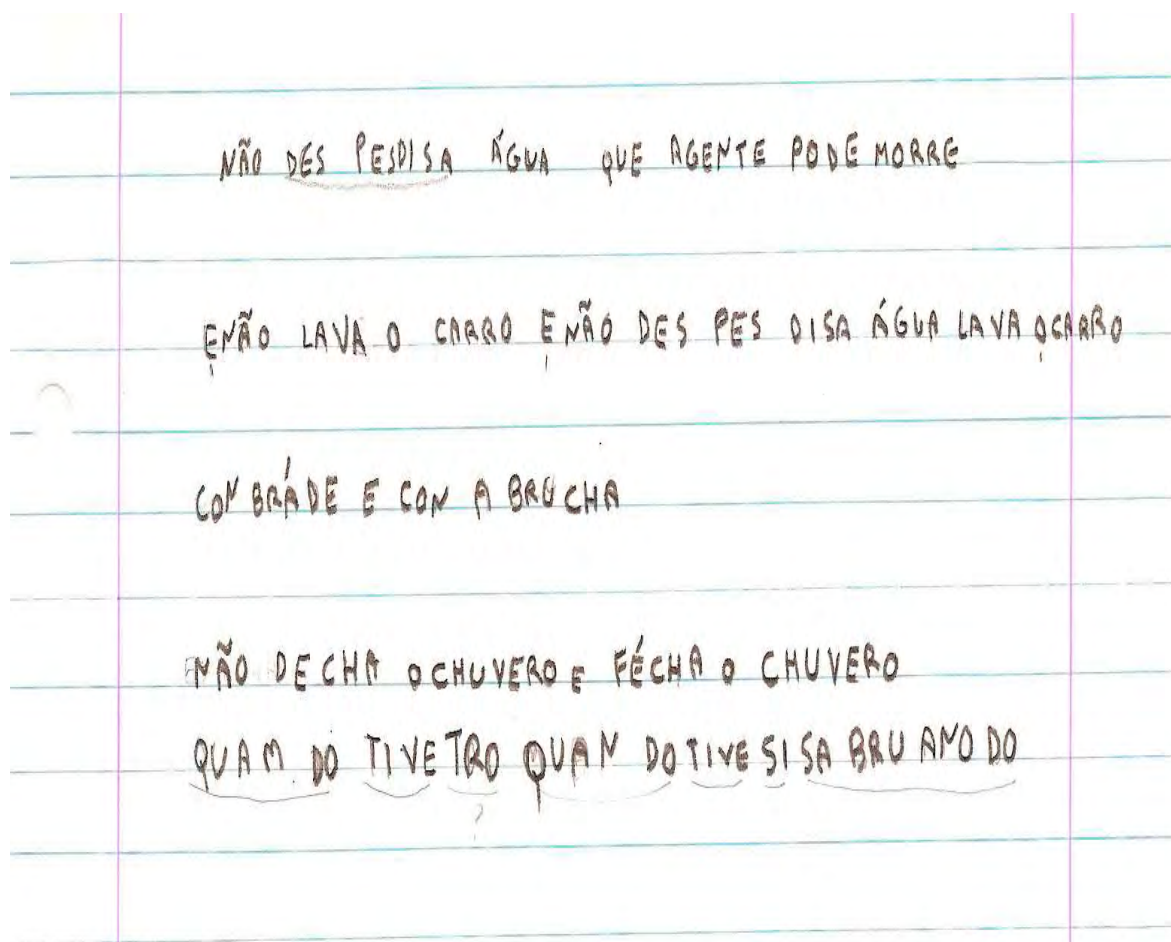 NÃO DES PESDISA ÁGUA QUE AGENTE PODE MORRE
ENÃO LAVA O CARRO E NÃO DES PES DISA ÁGUA LAVA OCARRO
CON BRÁDE E CON A BRUCHA
NÃO DECHA OCHUVERO E FÉCHA O CHUVERO
QUAM DO TIVE TRO QUAN DO TIVE SI SA BRU ANO DO
?